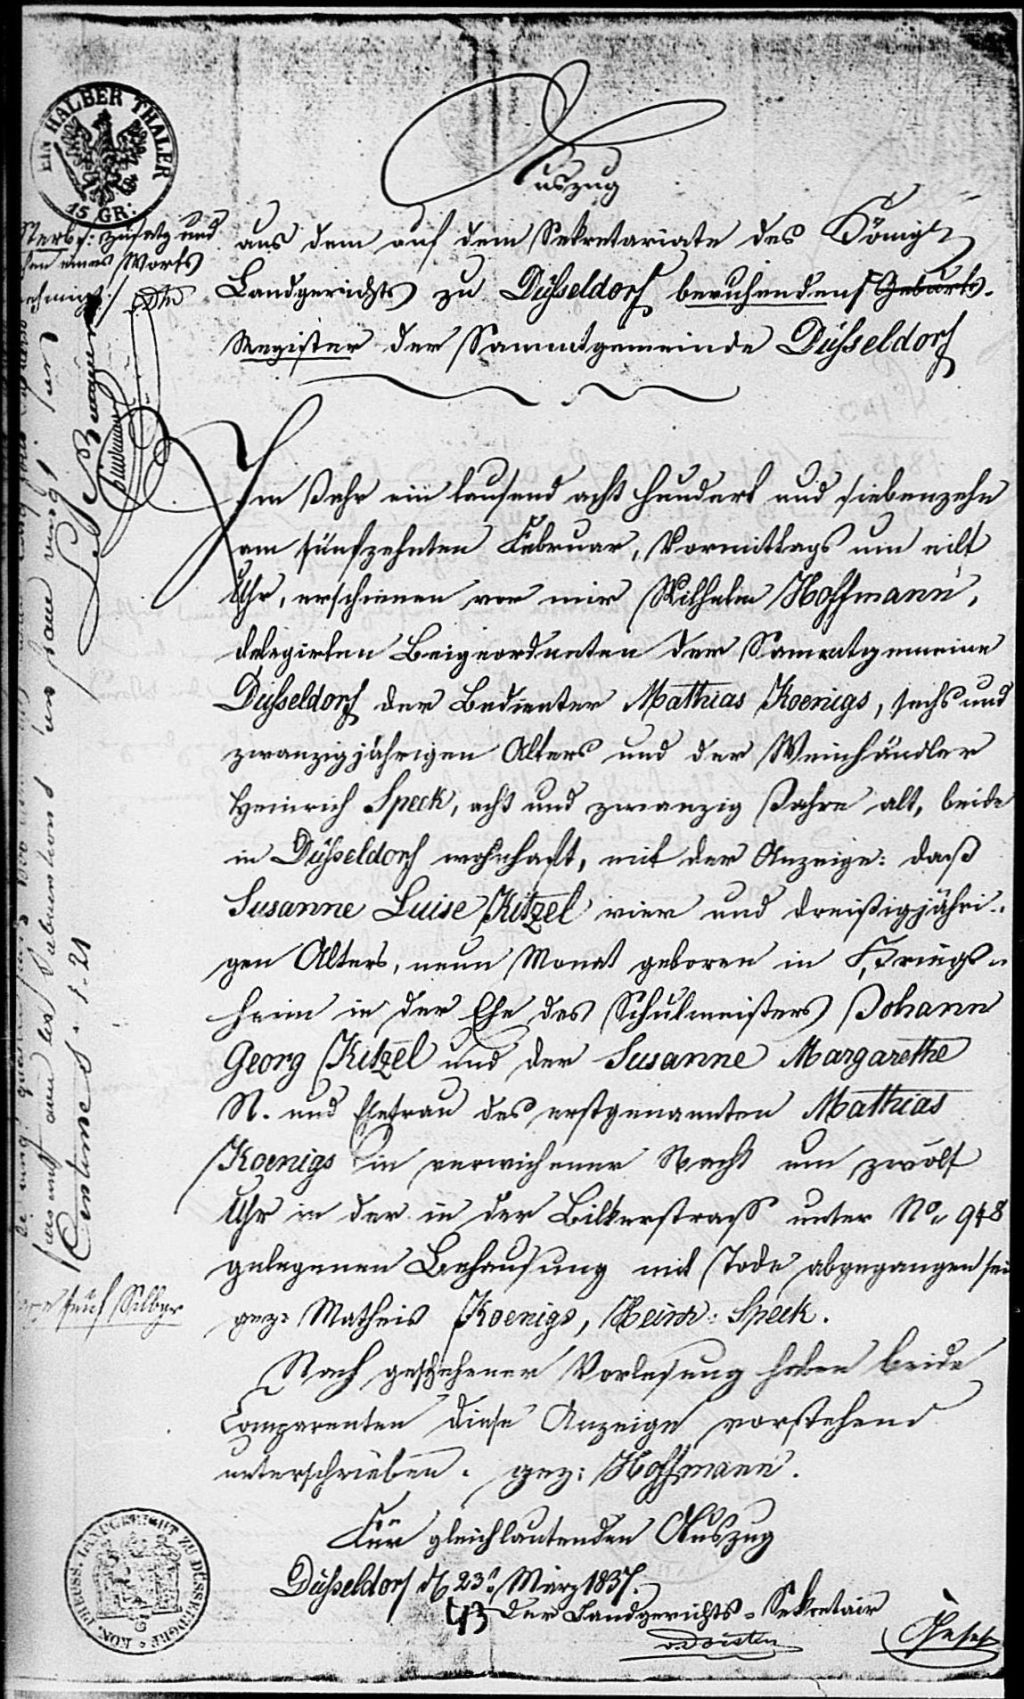 EIN HALBER THALER
15 GR:
Auszug
Sterbe: Zusatz und
eines Worts
aus dem auf dem Sekretariate des Königl.
Landgerichts zu Düsseldorf beruhenden Geburts-
Register der Sammtgemeinde Düsseldorf
Im Jahr ein tausend acht hundert und siebenzehn
am fünfzehnten Februar, Vormittags um eilf
Uhr, erschienen vor mir Wilhelm Hoffmann,
delegirten Beigeordneten der Sammtgemeine
Düsseldorf der Bedienter Mathias Koenigs, sechs und
zwanzigjährigen Alters und der Weinhändler
Heinrich Speck, acht und zwanzig Jahre alt, beide
in Düsseldorf wohnhaft, mit der Anzeige: daß
Susanne Luise Kitzel vier und dreißigjähri-
gen Alters, neun Monat geboren in Kriegs-
heim in der Ehe des Schulmeisters Johann
Georg Kitzel und der Susanne Margarethe
N. und Ehefrau des erstgenannten Mathias
Koenigs in verwichener Nacht um zwölf
Uhr in der in der Bilkerstraß unter No. 948
gelegenen Behausung mit Tode abgegangen sei
gez: Matheis Koenigs, Heinr: Speck.
Nach geschehener Vorlesung haben beide
Comparenten diese Anzeige vorstehend
unterschrieben. gez: Hoffmann.
Für gleichlautenden Auszug
Düsseldorf d. 23n. März 1837.
Der Landgerichts-Sekretair
43
Centimes
fünf Silbgr
KÖN. PREUSS. LANDGERICHT ZU DÜSSELDORF